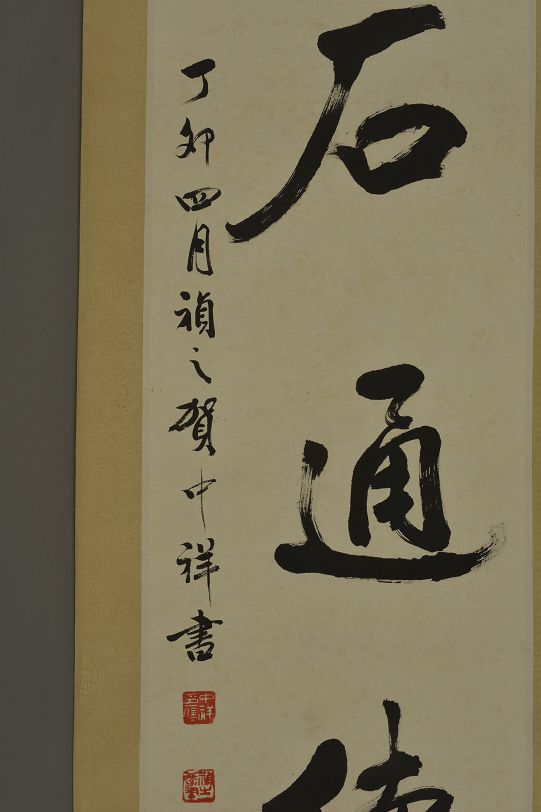 石通
丁卯四月禎之賀中祥書
中祥